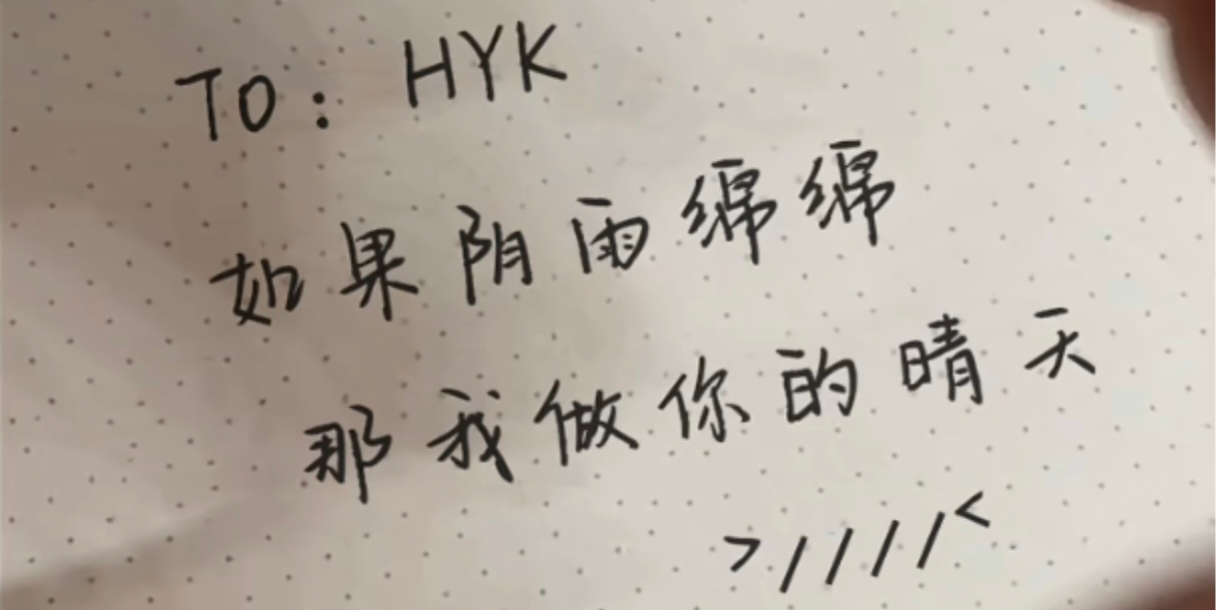 TO: HYK
如果阴雨绵绵
那我做你的晴天
>////<